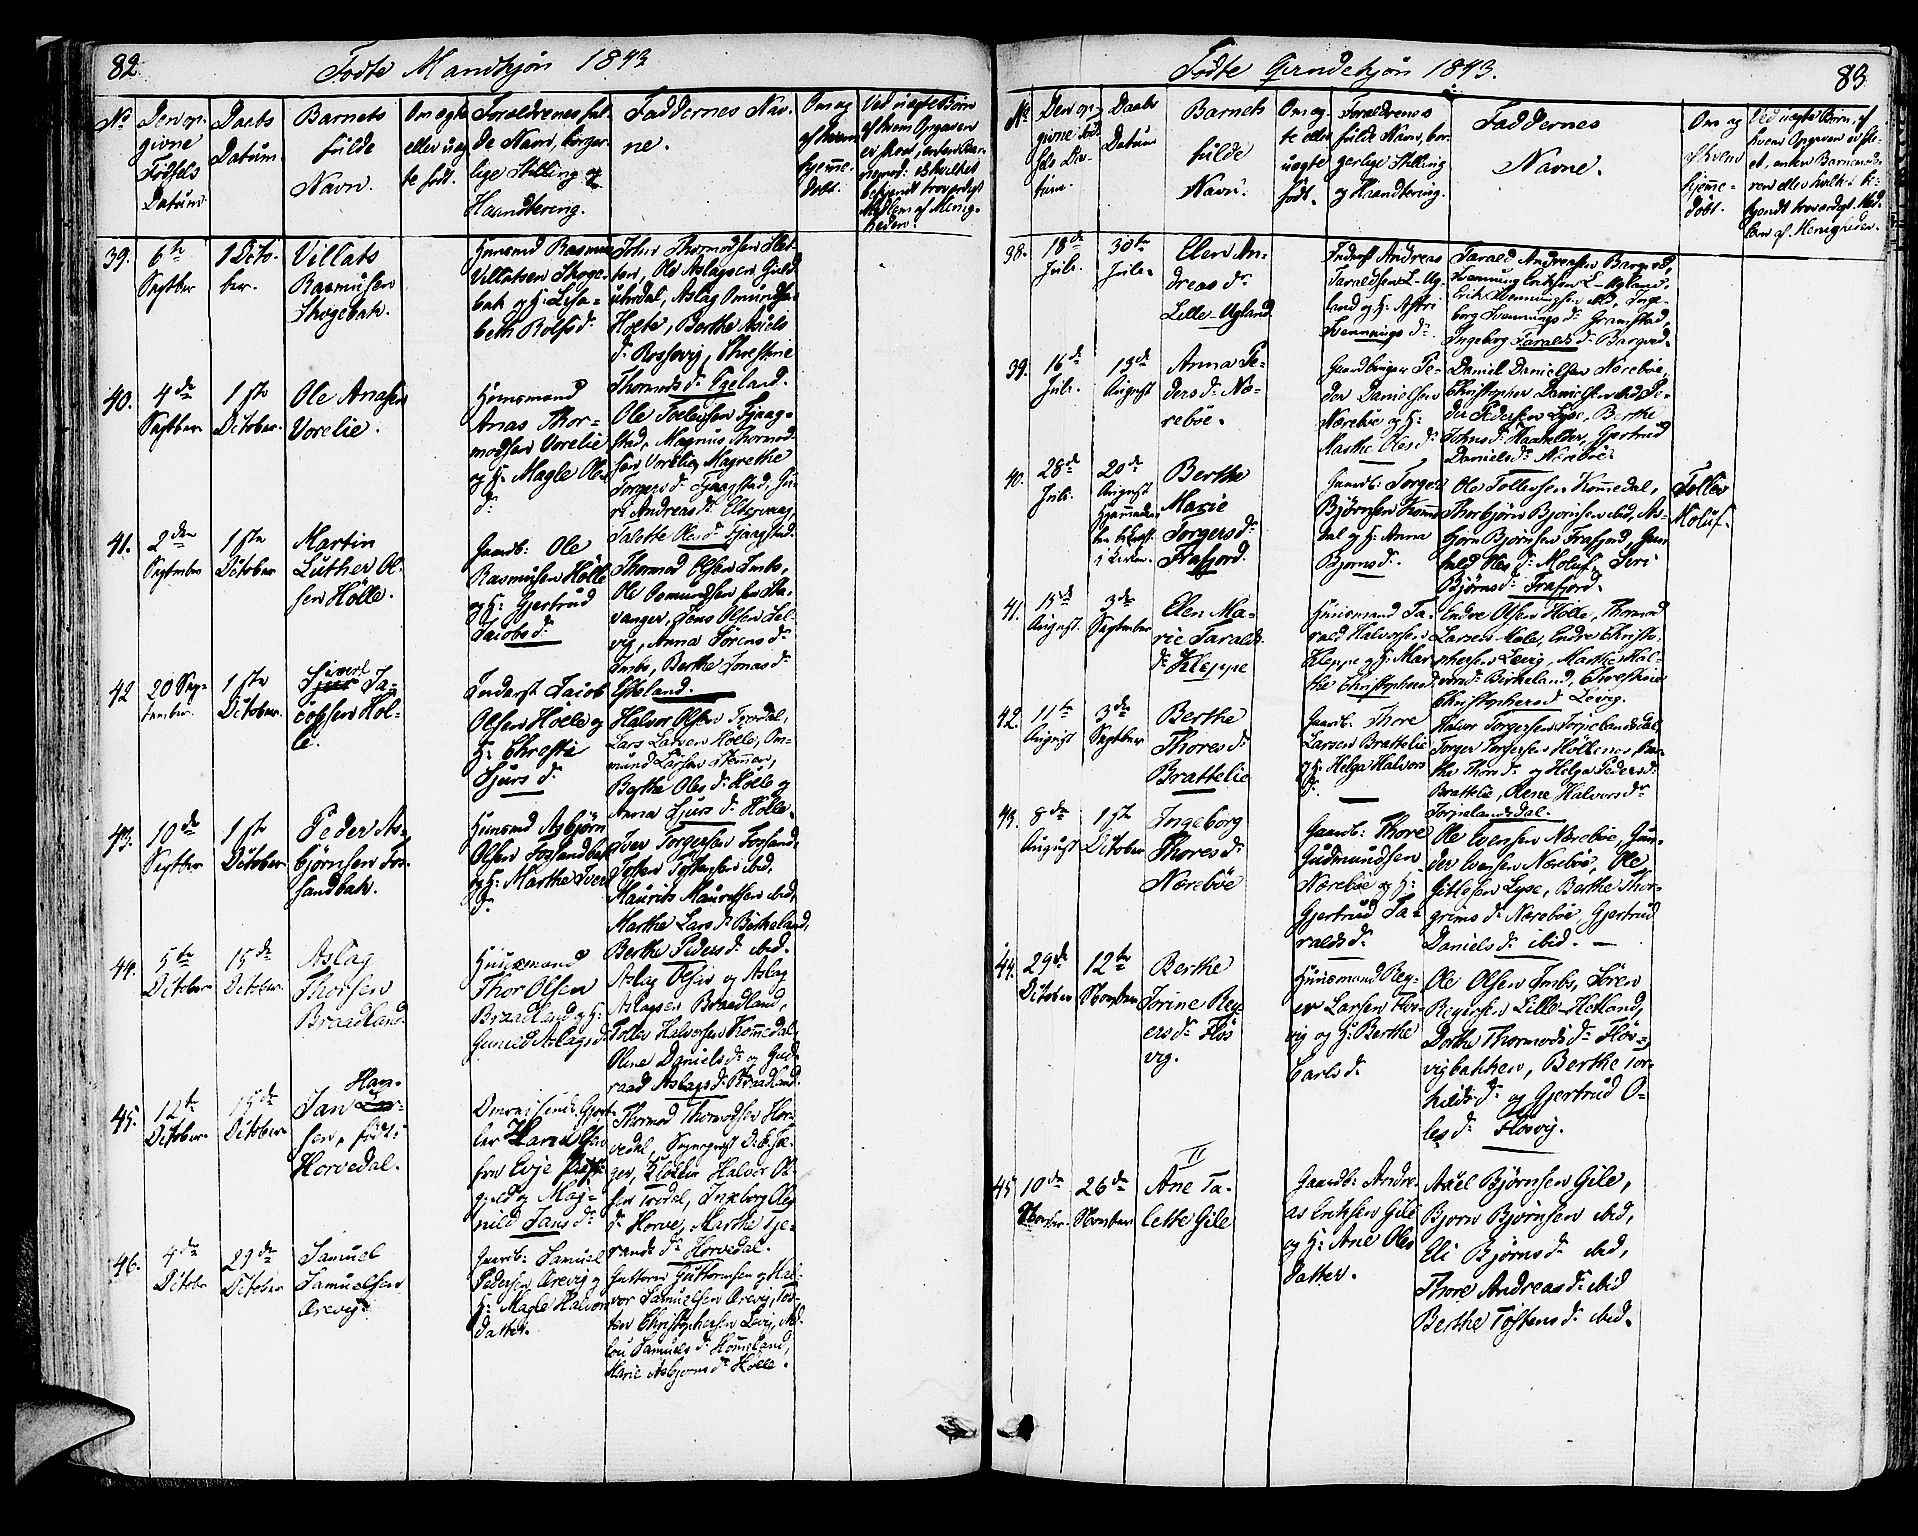 82
Födte Mandkjön 1843
No
Den op-
givne
Födsels
Datum
Daabs
Datum.
Barnets
fulde
Navn.
Om ægte
eller uæg-
te født.
Forældrenes ful-
de Navn, borger-
lige Stilling og
Haandtering.
Faddernes Nav-
ne.
Om og
af hvem
hjemme-
døbt.
Ved uægte Børn
af hvem Opgaven
er skeet, enten Bar-
bekjendt troværdigt
Medlem af Menig-
heden.
39.
6te
Septber
1 Octo-
ber.
Villats
Rasmusen
Skogebak.
Huusmd Rasmus
Villatsen Skoge-
bak og H: Lisa-
beth Rolfsd:
John Thormodsen
Ole Aslagsen
Aslag Omundsen
Berthe
d: Rossevig, Christine
Thormodsd: Egeland.
40.
4de
Septber
1ste
October.
Ole Anasen
Vorelie.
Huusmand
Anas Thor-
modsen Vorelie
og H: Magle Oles
d:
Ole Tollevsen Fjaag-
stad, Magnus Thormod-
sen Vorelie, Magrethe
Torgersd: Fjaagstad,
Andreasd:
Talette Olesd: Fjaagstad.
41.
2den
September
1ste
October
Martin
Luther Ol-
sen Hölle.
Gaardb: Ole
Rasmusen Hölle
og H: Gjertrud
Jacobsd:
Thormod Olsen Imbs,
Ole Osmundsen fra Sta-
vanger, Jens Olsen Sel-
vig, Anna Sörensd:
Imbs, Berthe Jonasd:
Eikeland.
42
20 Sep-
tember.
1ste
October.
Sivert
Ja-
cobsen Höl-
le.
Inderst Jacob
Olsen Hölle og
H: Christie
Sjursd:
Halvor Olsen
Lars Larsen Hölle, Om-
mund Larsen
Berthe Olesd: Hölle og
Anna Sjursd: Hölle.
43.
10de
Septber
1ste
October
Peder As-
björnsen Fos-
sandbak.
Huusmd Asbjörn
Olsen Fossandbak
og H: Marthe Ivers
d:
Iver Torgersen Fossand,
Tosten Tostensen ibid,
Maurits Mauritsen ibid,
Marthe Larsd: Birkeland,
Berthe Pedersd: ibid.
44.
5te
October
15de
October.
Aslag
Thorsen
Braadland
Huusmand
Thor Olsen
Braadland og H:
Gunild Aslagsd:
Aslag Olsen og Aslag
Aslagsen Braadland,
Tollev Halvorsen Kommedal,
Oline Danielsd: og Gud-
raad Aslagsd: Braadland.
45.
12te
October.
15de
October.
Jan Han-
sen, født i
Horvedal.
Omreisende
Hans
fra Evje
og Mag-
nild Jansd:
Thormod Thormodsen Hor-
vedal,
Halvor Ol-
sen Ingeborg Oles
d: Horve, Marthe Tje-
randsd: Horvedal.
46.
4de
October
29de
October
Samuel
Samuelsen
Ørevig
Gaardb: Samuel
Pedersen Ørevig og
H: Magle Halvors
datter.
Guttorm Guttormsen og Hal-
vor Samuelsen Ørevig, Tor-
Christophersen Levig,
Samuelsd: Hommeland,
Marie Asbjørnsd: Hölle.
Födte Qvindekjön 1843.
83
No
Den op-
givne Föd-
sels Da-
tum.
Daabs
Datum
Barnets
fulde
Navn.
Om æg-
te eller
uægte
født.
Forældrenes
fulde Navn, bor-
gerlige Stilling
og Haandtering.
Faddernes
Navne.
Om og
af hvem
hjemme-
døbt.
Ved uægte Børn, af
hvem Opgaven er ske-
et, enten Barnemode-
ren eller hvilket be-
kjendt troværdigt Med-
lem af Menigheden.
38.
18de
Juli.
30te
Juli.
Elen An-
dreasd:
Lille-Ugland
Inderst Andreas
Taraldsen L-Ug-
land og H: Astri
Svenningsd:
Tarald Andreassen
Svenning Eriksen L-Ugland,
Erik Svenningsen ibid, Inge-
borg Svenningsd: Grimstad,
Ingeborg Taraldsd:
39.
16de
Juli.
13de
August
Anna Pe-
dersd: Næ-
reböe.
Gaardbruger Pe-
der Danielsen
Næreböe og H:
Marthe Olesd:
Daniel Danielsen Næreböe,
Christopher Danielsen ibid, Pe-
der Pedersen Lyse, Berthe
Johnsd: Haahelder, Gjertrud
Danielsd: Næreböe.
40.
28de
Juli.
20de
August
Hjemmedaa-
ben bekræft
i Kirken.
Berthe
Marie
Torgersd:
Frafjord.
Gaardb: Torger
Björnsen Komme-
dal og H: Anna
Bjornsd:
Ole Tollevsen Kommedal,
Thorbjörn Bjornsen ibid, As-
bjorn Bjornsen Frafjord, Gun-
hild Olesd: Moluf, Siri
Björnsd: Frafjord.
Tollev
Moluf.
41.
15de
August.
3de
September
Elen Ma-
rie Taralds
d: Kleppe
Huusmand Ta-
rald Halvorsen
Kleppe og H: Mar-
the Christophersd
Endre Olsen Hölle, Thormod
Larsen Mele, Endre Christo-
phersen Levig, Marthe Hal-
vorsd: Birkeland, Christine
Christophersd Levig.
42.
11te
August
3de
Septber
Berthe
Thoresd:
Brattelie
Gaardb: Thore
Larsen Brattelie
og H: Helga Halvors
d:
Halvor Torgersen Forsselandsdal,
Torger Torgersen Höllenes, Ber-
the Thoresd: og Helga Pedersd:
Brattelie, Olene Halvorsd:
43.
8de
August
1ste
October
Ingeborg
Thoresd:
Næreböe
Gaardb: Thore
Gudmundsen
Næreböe og H:
Gjertrud Ta-
raldsd:
Ole Evensen Næreböe, Gun-
der Evensen Næreböe, Ole
Gitlesen Lyse, Berthe Thor-
grimsd: Næreböe, Gjertrud
Danielsd: ibid.
44.
29de
October
12te
Novber
Berthe
Jorine Rey-
ersd: Flös-
vig.
Huusmand Rey-
er Larsen Flös-
vig og H: Berthe
Carlsd:
Ole Olsen Imbs, Sören
Reyersen Lille-Hetland,
Dorthe Thormodsd: Flös-
vigbakken, Berthe Tor-
kildsd: og Gjertrud O-
lesd: Flösvig.
45
10de
Novber.
26de
Novber
Ane Ta-
lette Gile
Gaardb: Andre-
as Eriksen Gile
og H: Ane Oles
datter.
Axel Bjørnsen Gile,
Bjorn Bjørnsen ibid,
Eli Bjørnsd: ibid,
Thore Andreasd: ibid
Berthe Tostensd: ibid.